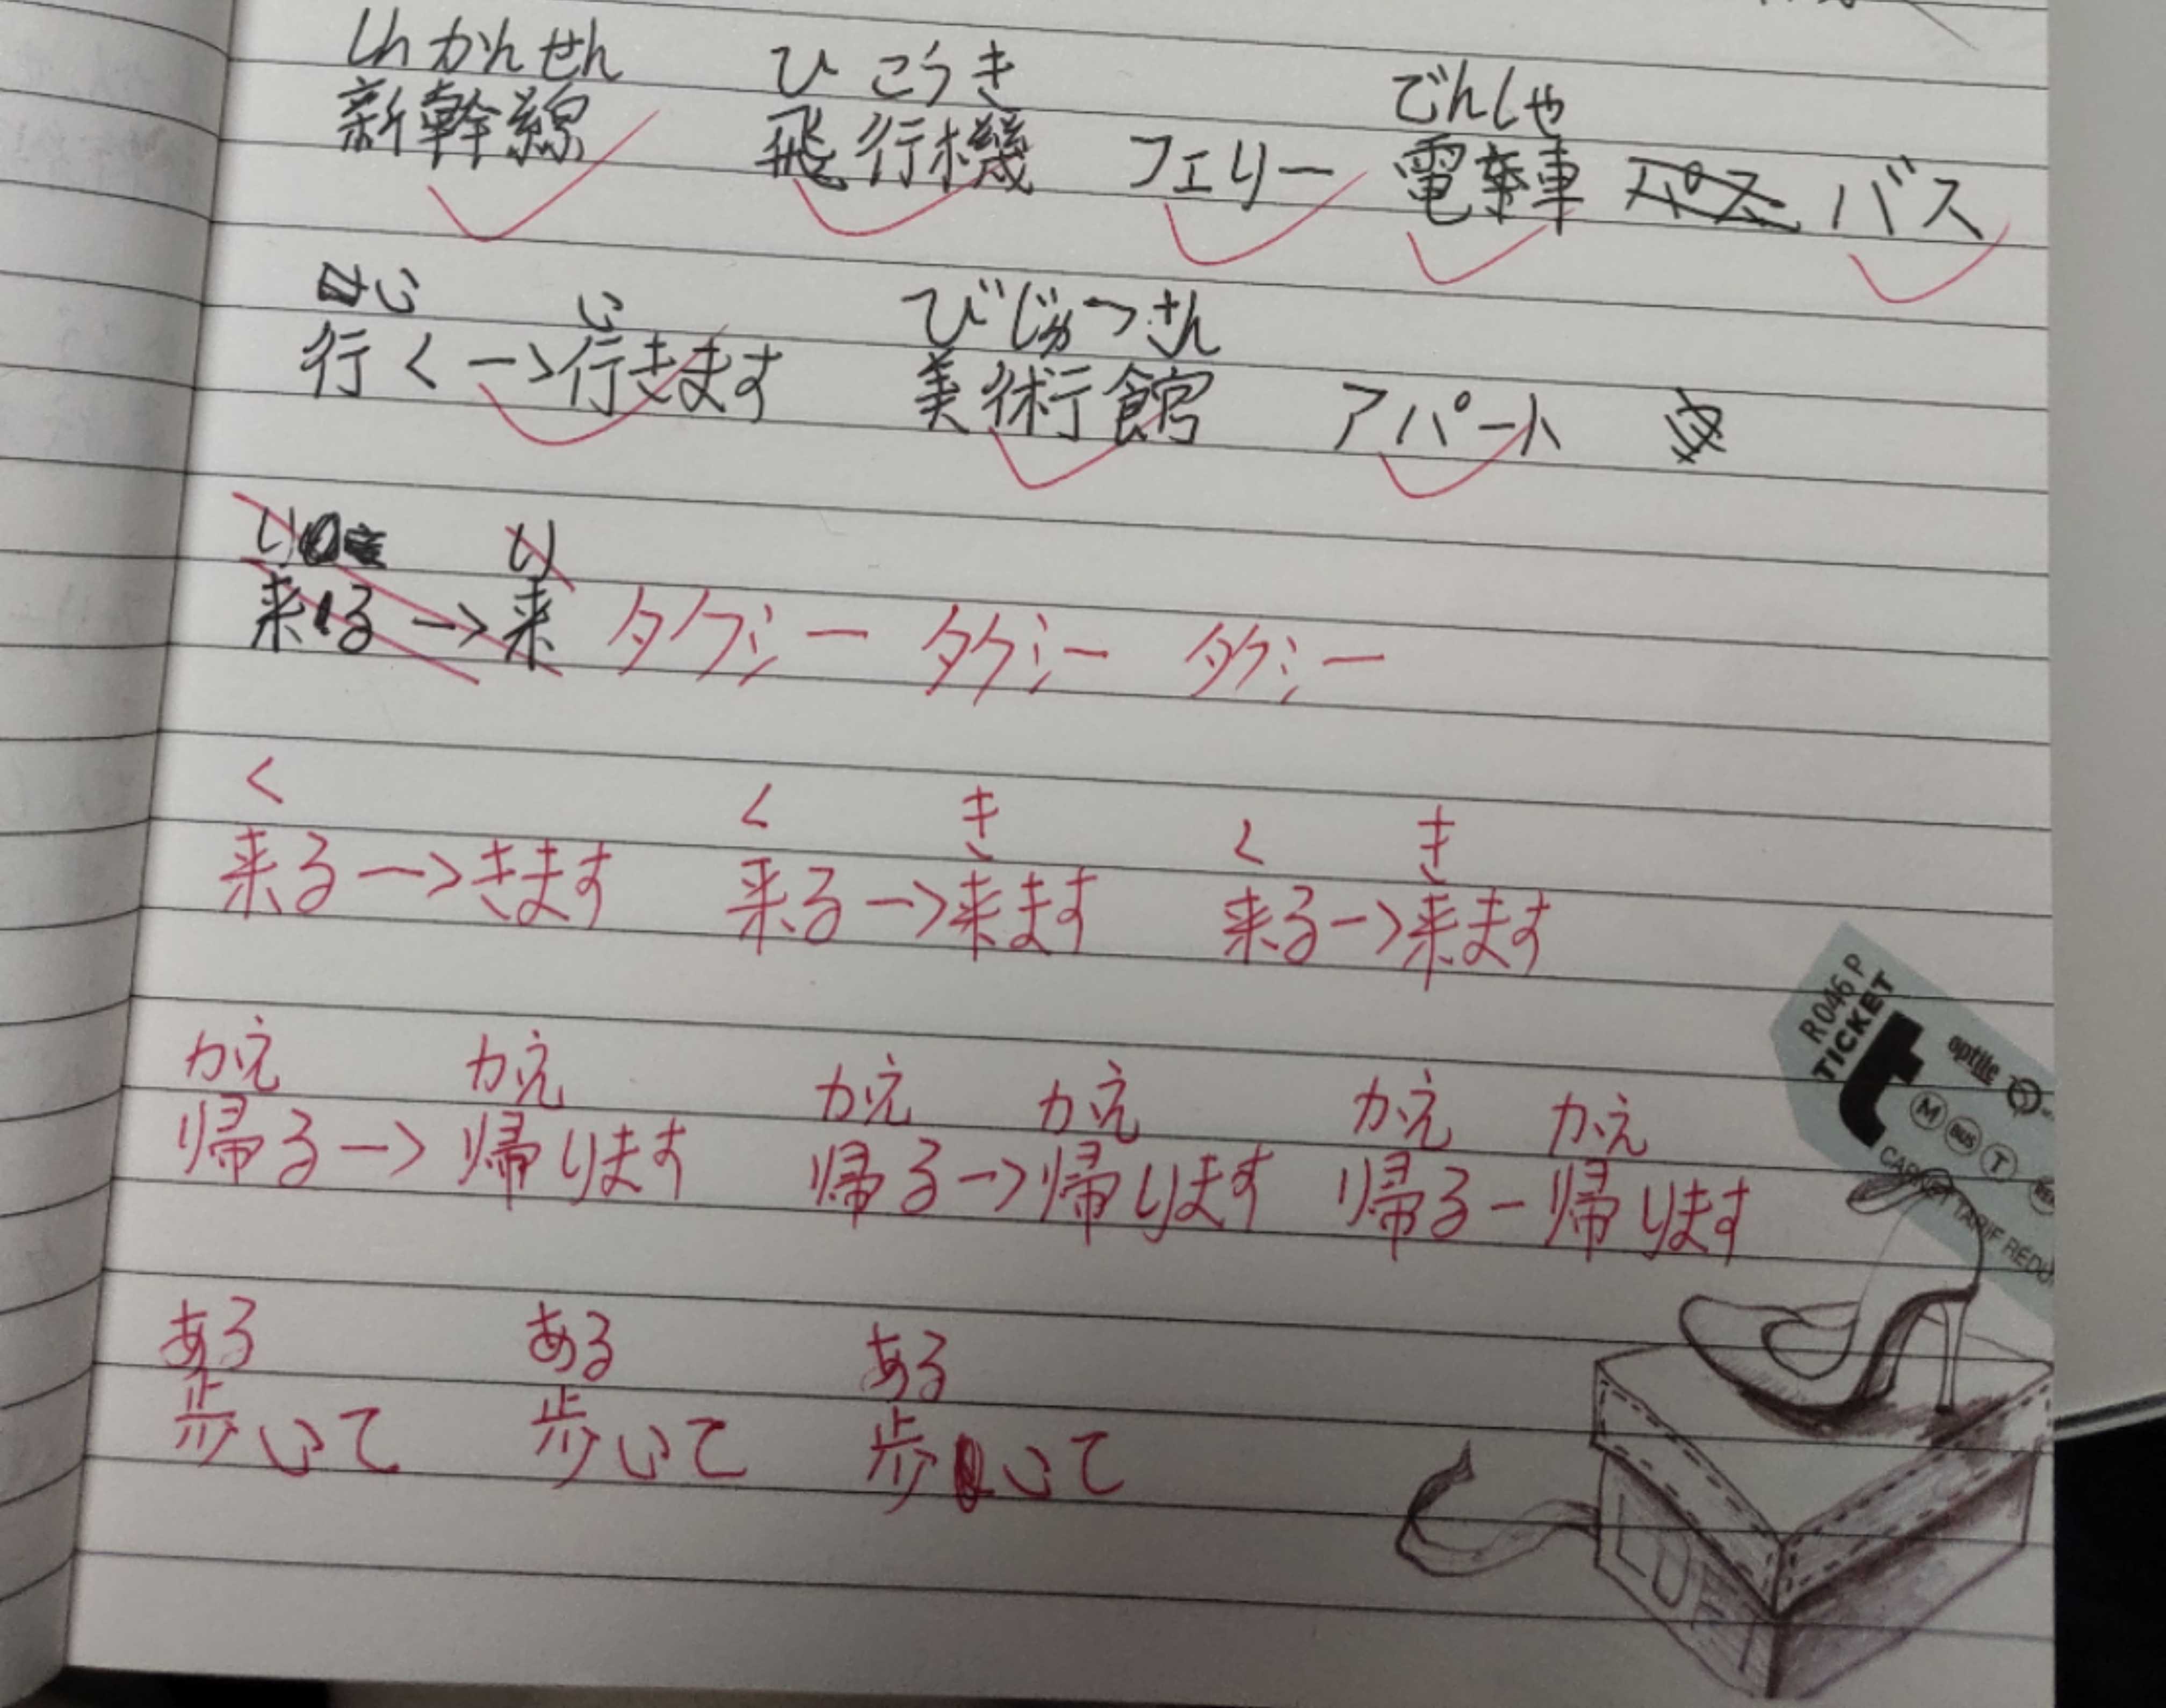 しんかんせん ひこうき でんしゃ
新幹線 飛行機 フェリー 電車 バス
い い びじゅつさん
行く→行きます 美術館 アパート
り り
来る→来 タクシー タクシー タクシー
く く き く き
来る→きます 来る→来ます 来る→来ます
かえ かえ かえ かえ かえ かえ
帰る→帰ります 帰る→帰ります 帰る-帰ります
ある ある ある
歩いて 歩いて 歩いて
R046P
TICKET
t
optile
M BUS T
CARNET TARIF REDU